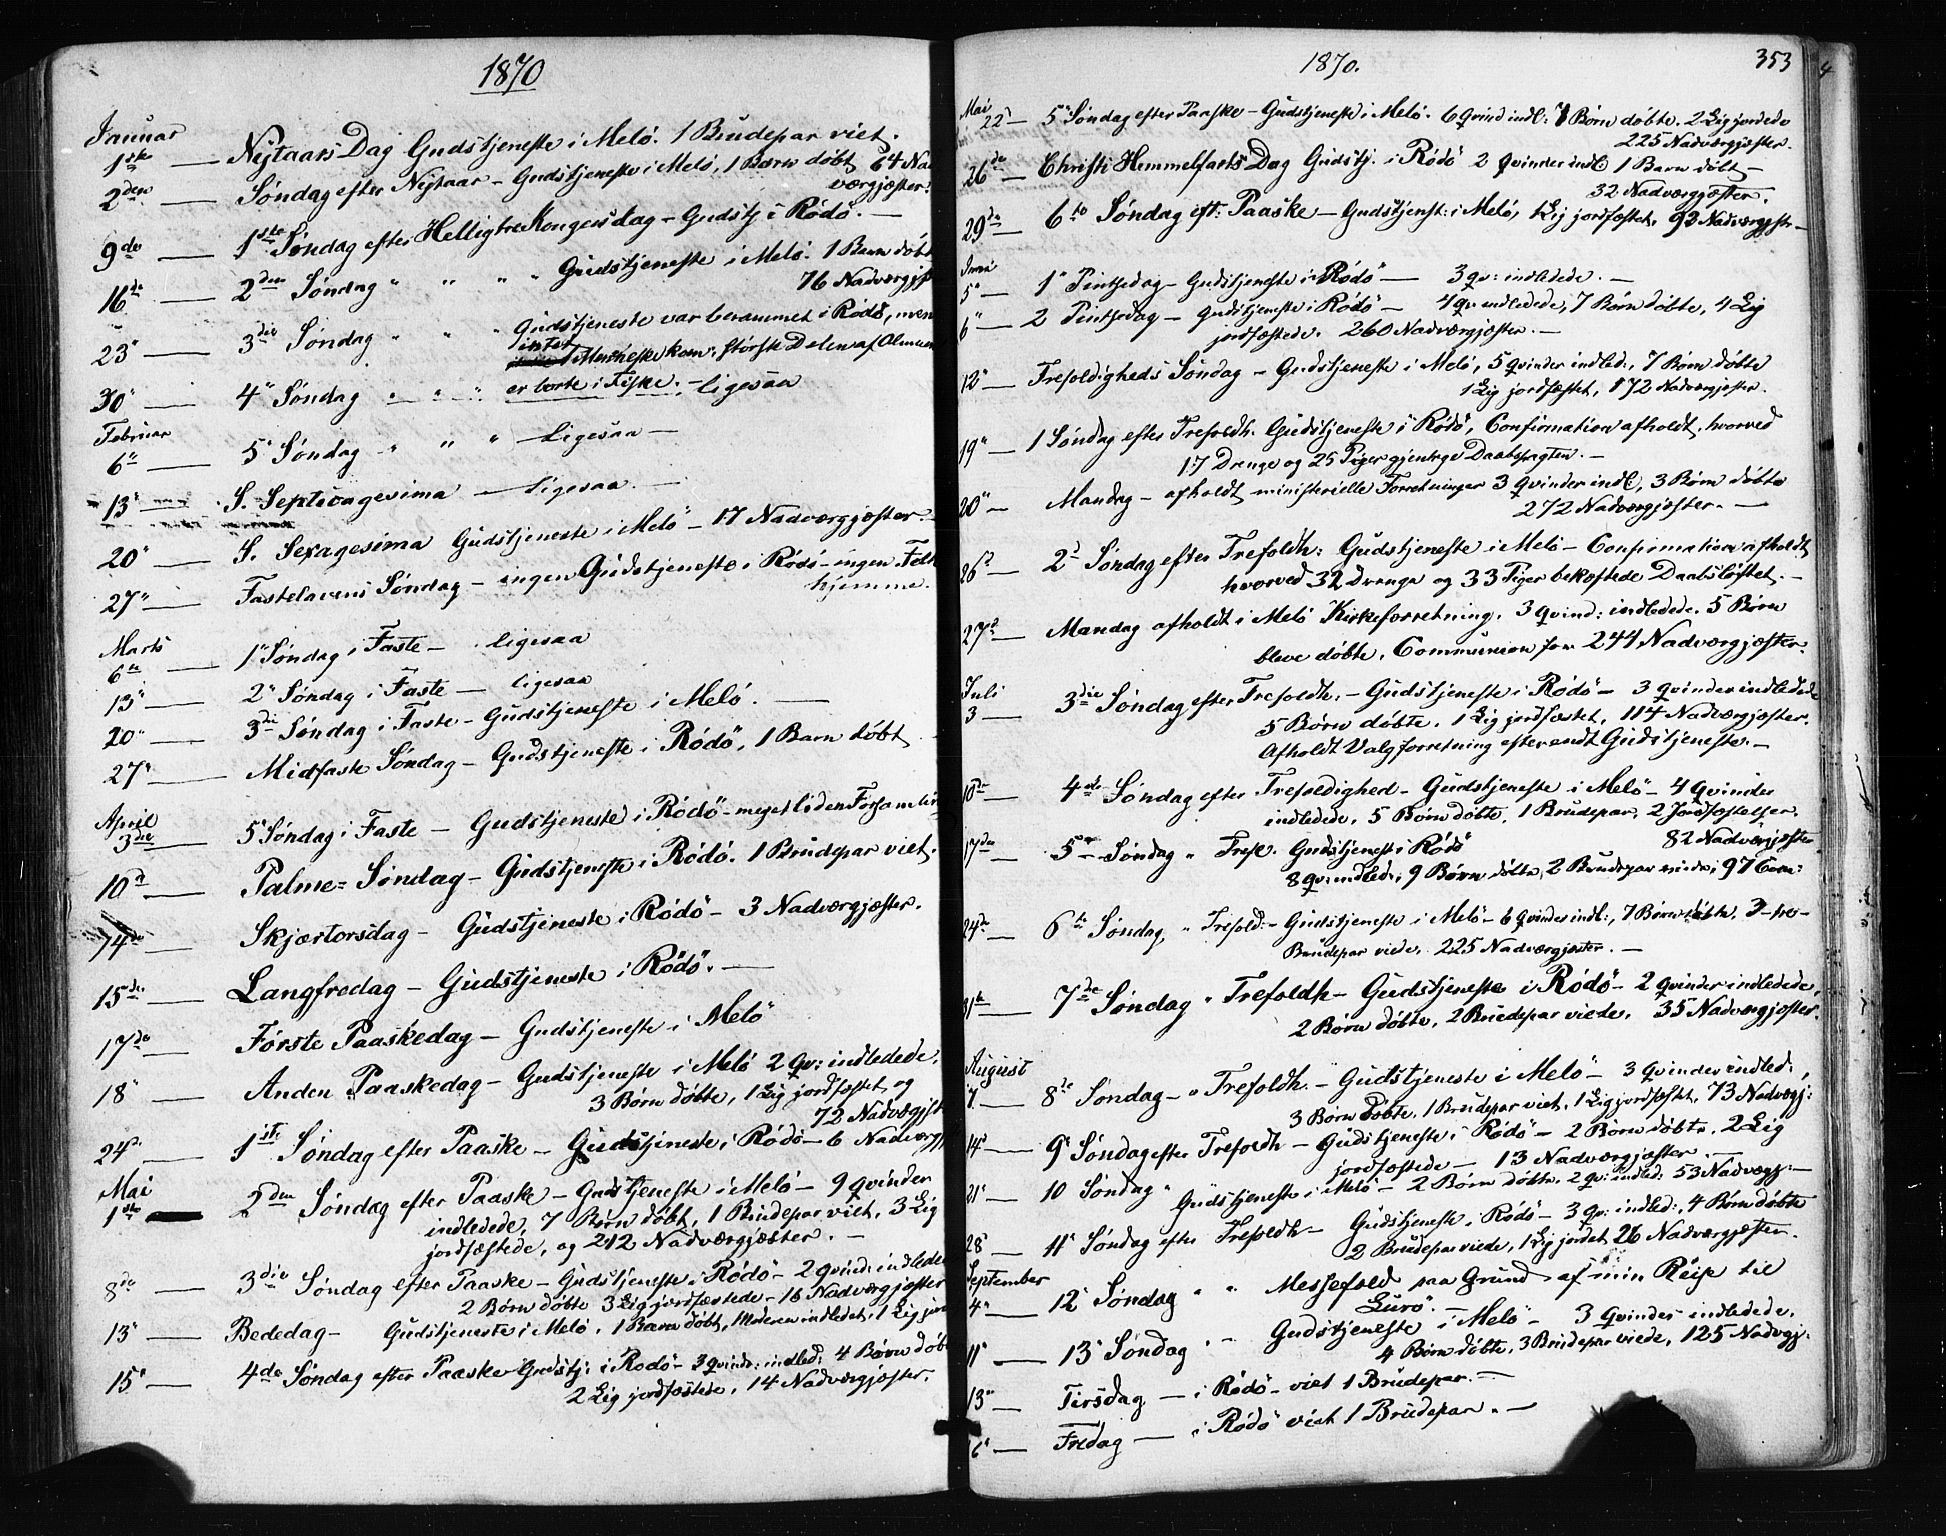 1870
Januar
1ste — Nytaars Dag Gudstjeneste i Melö. 1 Brudepar viet.
2den — Søndag efter Nytaar – Gudstjeneste i Melö, 1 Barn døbt 64 Nad
værgjæster.
9de — 1ste Søndag efter Helligtre Kongersdag – Gudstj i Rödö. —
16de — 2den Søndag " " " " Gudstjeneste i Melö. 1 Barn døbt
76 Nadværgjst
23" — 3die Søndag " " " Gudstjeneste var berammet i Rödö, men
intet Menneske kom; störste Delen af Almuen
30" — 4" Søndag " " " er borte i Fiske. – ligesaa
Februar
6" — 5" Søndag " " " – ligesaa –
13" — S. Septuagesima – ligesaa. –
20" — S. Sexagesima Gudstjeneste i Melö – 17 Nadværgjæster.
27" — Fastelavens Søndag – ingen Gudstjeneste i Rödö – ingen Folk
hjemme.
Marts
6te — 1" Søndag i Faste – ligesaa
13" — 2" Søndag i Faste – ligesaa
20" — 3die Søndag i Faste – Gudstjeneste i Melö. —
27" — Midfaste Søndag – Gudstjeneste i Rödö, 1 Barn døbt
April
3die — 5" Søndag i Faste – Gudstjeneste i Rödö – meget liden Forsamling
10d — Palme= Søndag – Gudstjeneste i Rödö. 1 Brudepar viet.
14de — Skjærtorsdag – Gudstjeneste i Rödö – 3 Nadværgjæster.
15de — Langfredag – Gudstjeneste i Rödö. —
17de — Første Paaskedag – Gudstjeneste i Melö
18" — Anden Paaskedag – Gudstjeneste i Melö 2 Qv: indledede,
3 Børn døbte, 1 Lig jordfæstet og
72 Nadvægjst
24d" — 1ste Søndag efter Paaske – Gudstjeneste i Rödö – 6 Nadværgj
Mai
1ste — 2den Søndag efter Paaske – Gudstjeneste i Melö – 9 Qvinder
indledede, 7 Børn døbt, 1 Brudepar viet, 3 Lig
jordfæstede, og 212 Nadværgjæster. —
8de — 3die Søndag efter Paaske – Gudstjeneste i Rödö – 2 Qvind: indlede
2 Børn døbte 3 Lig jordfæstede – 16 Nadværgjæster
13" — Bededag – Gudstjeneste i Melö. 1 Barn døbt, Moderen indledet, 1 Lig jord
15" — 4de Søndag efter Paaske Gudstj: i Rödö – 3 Qvind: indled: 4 Børn døbt
2 Lig jordfæstede, 14 Nadværgjæster.
1870.
353
Mai
22d — 5" Søndag efter Paaske – Gudstjeneste i Melö. 6 Qvind indl: 7 Børn døbte. 2 Lig jordede
225 Nadværgjæster.
26de — Christi Hemmelfarts Dag Gudstj. i Rödö 2 Qvinder indl: 1 Barn døbt –
32 Nadværgjæster.
29de — 6te Søndag eft: Paaske – Gudstjenst: i Melö, 1 Lig jordfæstet, 93 Nadværgjstr –
Juni
5" — 1" Pintsedag – Gudstjeneste i Rödö – 3 Qv: indledede. –
6" — 2 Pintsedag – Gudstjeneste i Rödö – 4 Qv: indledede, 7 Børn døbte, 4 Lig
jordfæstede. 260 Nadværgjæster. —
12" — Trefoldigheds Søndag – Gudstjeneste i Melö, 5 Qvinder indled:, 7 Børn døbte
1 Lig jordfæstet, 172 Nadværgjæster.
19" — 1 Søndag efter Trefoldh. Gudstjeneste i Rödö, Confirmation afholdt, hvorved
17 Drenge og 25 Piger gjentoge Daabspagten. —
20" — Mandag – afholdt ministerielle Forretninger 3 Qvinder indl:, 3 Børn døbte
272 Nadværgjæster. —
26d — 2d Søndag efter Trefoldh: Gudstjeneste i Melö – Confirmation afholdt
hvorved 32 Drenge og 33 Piger bekræftede Daabsløftet. –
27d — Mandag afholdt i Melö Kirkeforretning. 3 Qvind: indledede. 5 Børn
bleve døbte. Communion for 244 Nadværgjæster.
Juli
3 — 3die Søndag efter Trefoldh. – Gudstjeneste i Rödö – 3 Qvinder indledede
5 Børn døbte. 1 Lig jordfæstet, 114 Nadværgjæster.
Afholdt Valgforretning efter endt Gudstjeneste. –
10de — 4de Søndag efter Trefoldighed – Gudstjeneste i Melö – 4 Qvinder
indledede, 5 Børn døbte, 1 Brudepar, 2 Jordfæstelser.
82 Nadværgjæster
17den — 5te Søndag " Trefl. Gudstjenest i Rödö
8 Qv: indled:, 9 Børn døbte, 2 Brudepar viede, 97 Com:
24de — 6te Søndag " Trefold: – Gudstjeneste i Melö – 6 Qvinder indl:, 7 Børn døbte. 3 – tre –
Brudepar viede, 225 Nadværgjæster. —
31te — 7de Søndag " Trefoldh – Gudstjeneste i Rödö – 2 Qvinder indledede,
2 Børn døbte, 2 Brudepar viede, 35 Nadværgjæster.
August
7. — 8de Søndag – " Trefoldh. – Gudstjeneste i Melö – 3 Qvinder indled:,
3 Børn døbte, 1 Brudepar viet, 1 Lig jordfæstet, 73 Nadværgj:
14" — 9" Søndag efter Trefoldh – Gudstjeneste i Rödö – 2 Børn døbte, 2 Lig
jordfæstede – 13 Nadværgjæster. —
21" — 10 Søndag " Gudstjeneste i Melö – 2 Børn døbte, 2 Qv: indled: 53 Nadvægj: —
28" — 11" Søndag efter Trefoldh – Gudstjeneste i Rödö – 3 Qv: indled:, 4 Børn døbte
2 Brudepar viede, 1 Lig jordet 26 Nadværgjæster.
September
4" — 12" Søndag " " Messefald paa Grund af min Reise til
Lurö. —
11" — 13" Søndag " – Gudstjeneste i Melö – 3 Qvinder indledede,
4 Børn døbte, 3 Brudepar viede, 125 Nadvgj:
13" — Tirsdag – i Rödö – viet 1 Brudepar. —
16" — Fredag – i Rödö viet 1 Brudepar. —